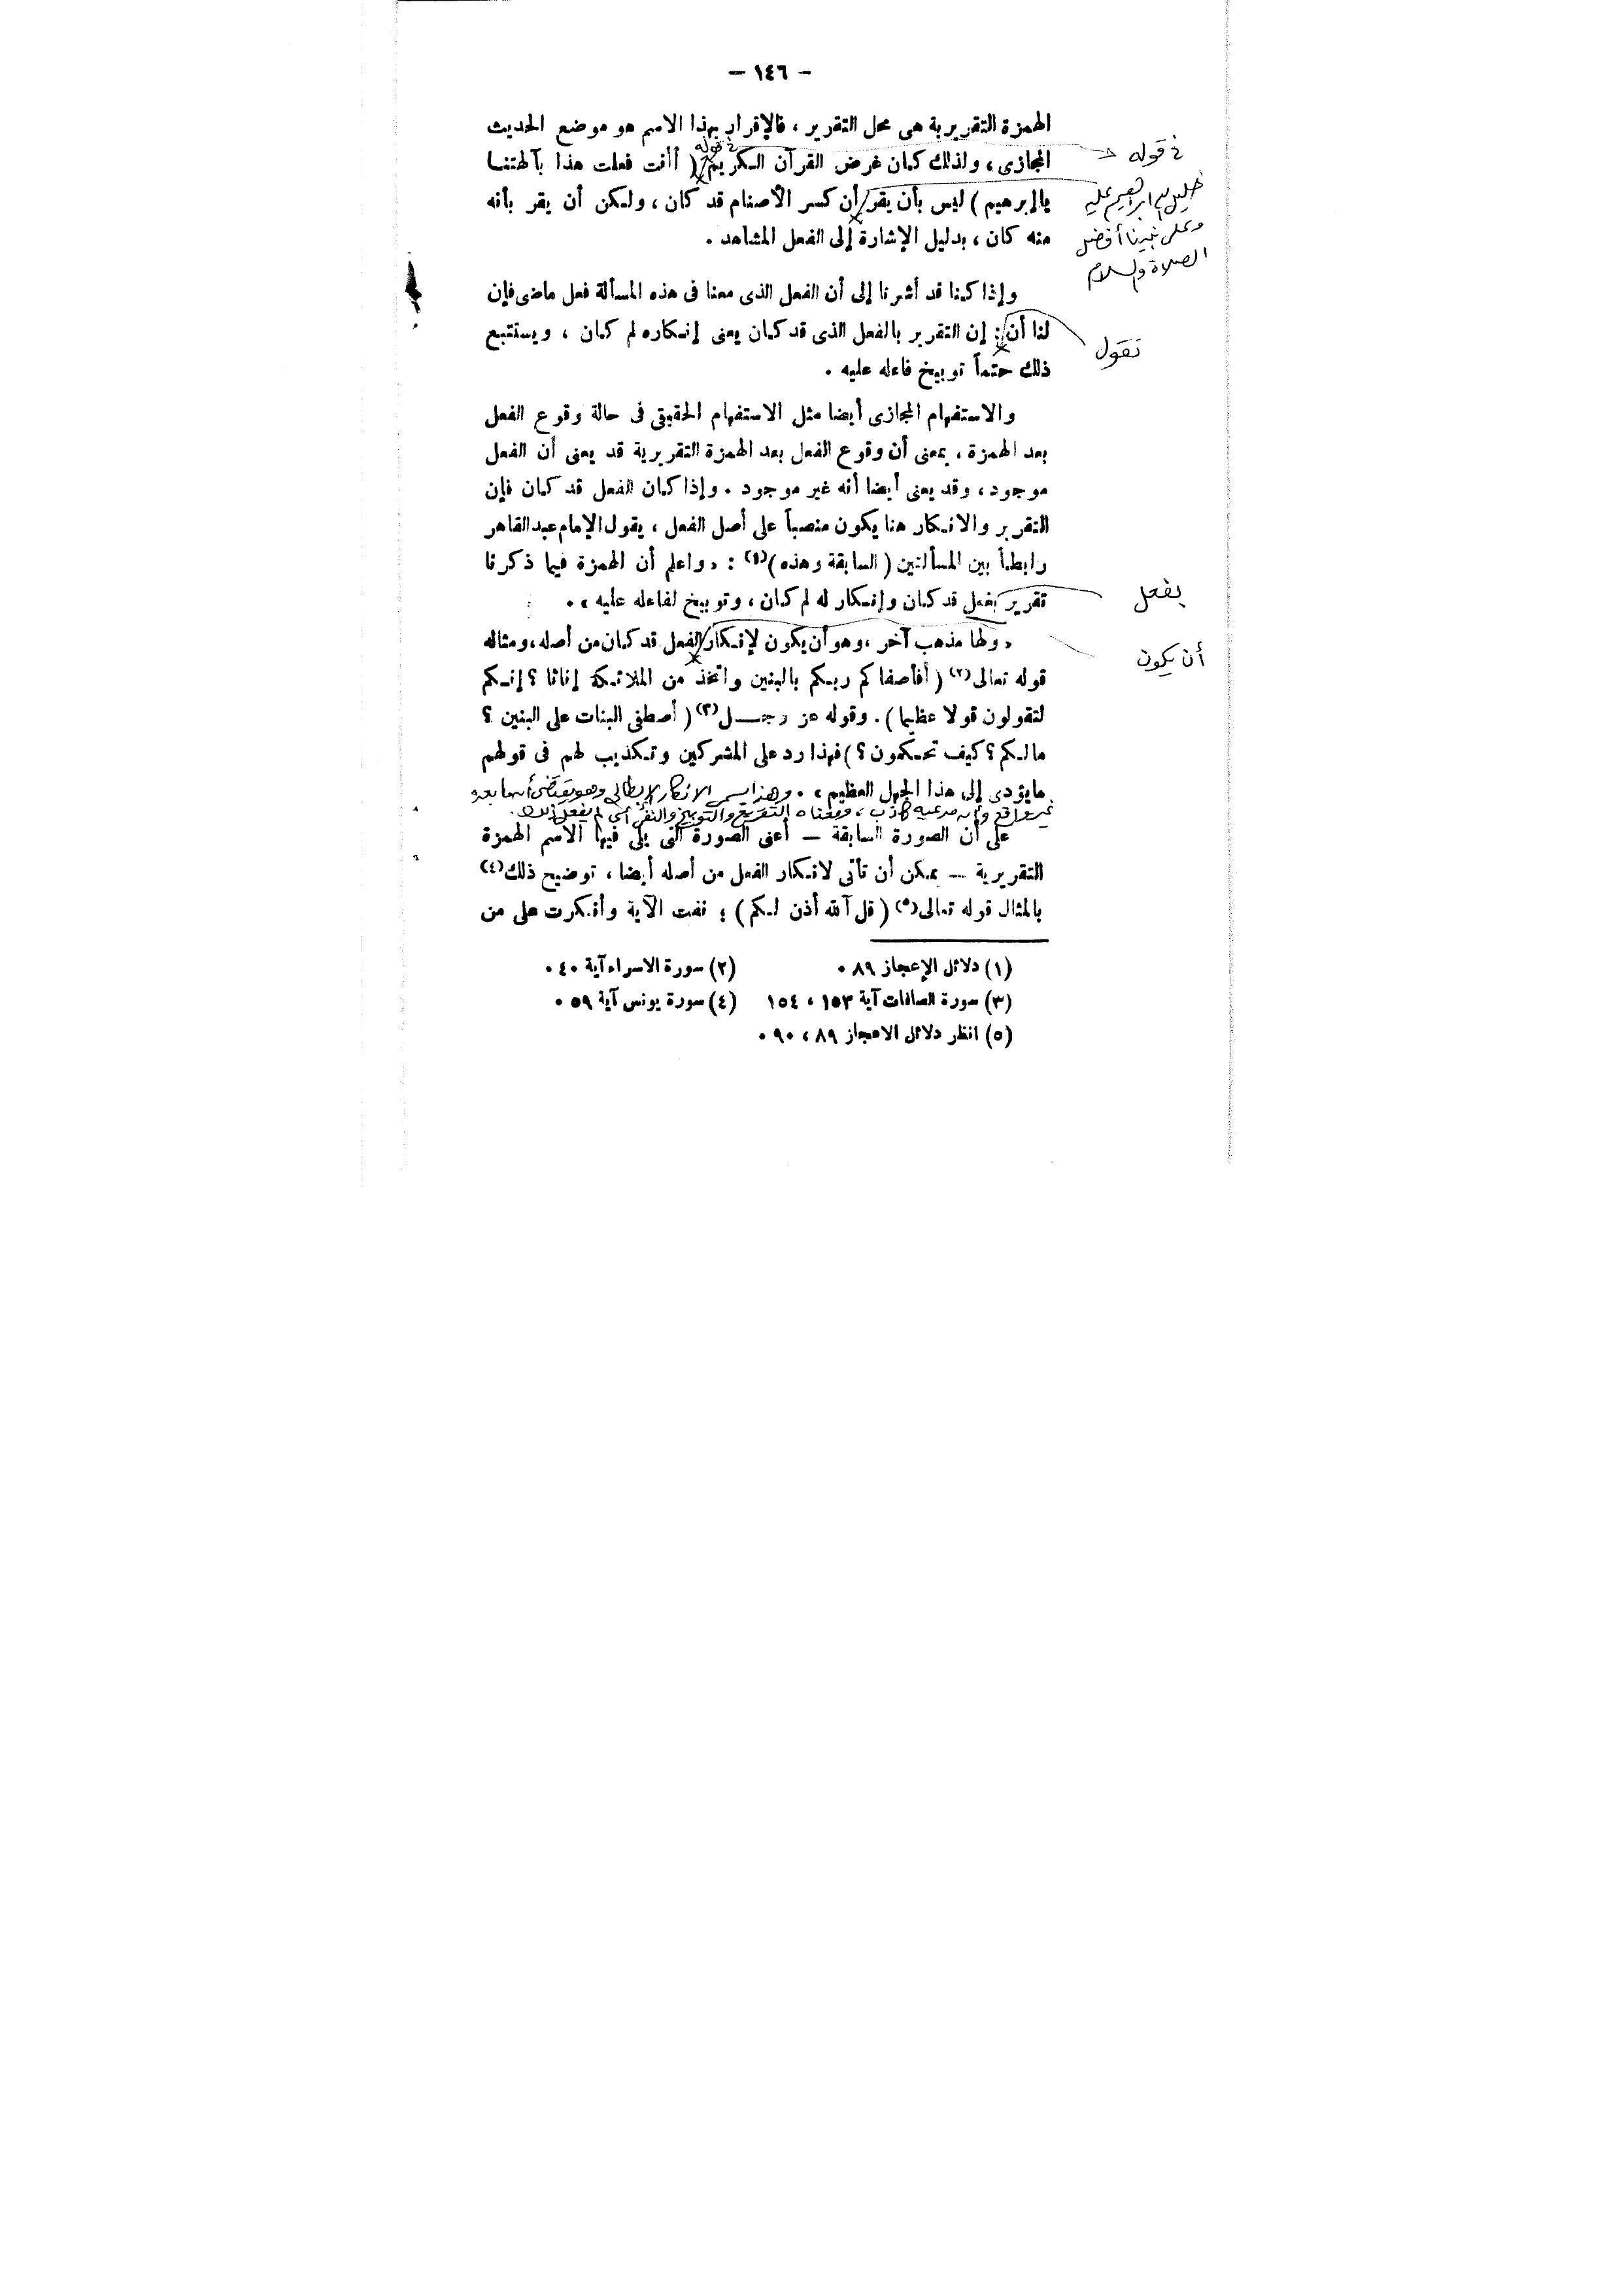 - ١٤٦ -
الهمزة التقريرية هى محل التقرير ، فالإقرار بهذا الاسم هو موضع الحديث
فى قوله
المجازى ، ولذلك كان غرض القرآن الكريم ( أأنت فعلت هذا بآلهتنا
فى قوله
يا إبرهيم ) ليس بأن يقر أن كسر الأصنام قد كان ، ولكن أن يقر بأنه
خليل الله ابراهيم عليه
وعلى نبينا أفضل
الصلاة والسلام
منه كان ، بدليل الإشارة إلى الفعل المشاهد .
وإذا كنا قد أشرنا إلى أن الفعل الذى معنا فى هذه المسألة فعل ماضى فإن
لنا أن : إن التقرير بالفعل الذى قد كان يعنى إنكاره لم كان ، ويستتبع
نقول
ذلك حتماً توبيخ فاعله عليه .
والاستفهام المجازى أيضا مثل الاستفهام الحقيقى فى حالة وقوع الفعل
بعد الهمزة ، بمعنى أن وقوع الفعل بعد الهمزة التقريرية قد يعنى أن الفعل
موجود ، وقد يعنى أيضا أنه غير موجود . وإذا كان الفعل قد كان فإن
التقرير والانكار هنا يكون منصباً على أصل الفعل ، يقول الإمام عبد القاهر
رابطاً بين المسألتين ( السابقة وهذه )(١) : « واعلم أن الهمزة فيما ذكرنا
تقرير بفعل قد كان وإنكار له لم كان ، وتوبيخ لفاعله عليه » .
بفعل
« ولها مذهب آخر ، وهو أن يكون لإنكار الفعل قد كان من أصله ، ومثاله
أن يكون
قوله تعالى(٢) ( أفأصفاكم ربكم بالبنين واتخذ من الملائكة إناثا ؟ إنكم
لتقولون قولا عظيما ) . وقوله عز وجل(٣) ( أصطفى البنات على البنين ؟
مالكم ؟ كيف تحكمون ؟ ) فهذا رد على المشركين وتكذيب لهم فى قولهم
مايؤدى إلى هذا الجهل العظيم » . وهذا يسمى الانكار الإبطالى وهو يقتضى أن ما بعده
غير واقع وأن مدعيه كاذب ، ومعناه التقريع والتوبيخ والنفى أى لم يفعل ذلك .
على أن الصورة السابقة — أعنى الصورة التى يلى فيها الاسم الهمزة
التقريرية — يمكن أن تأتى لانكار الفعل من أصله أيضا ، توضيح ذلك(٤)
بالمثال قوله تعالى(٥) ( قل آلله أذن لكم ) ؛ نفت الآية وأنكرت على من
(١) دلائل الإعجاز ٨٩ . (٢) سورة الاسراء آية ٤٠ .
(٣) سورة الصافات آية ١٥٣ ، ١٥٤ (٤) سورة يونس آية ٥٩ .
(٥) انظر دلائل الاعجاز ٨٩ ، ٩٠ .